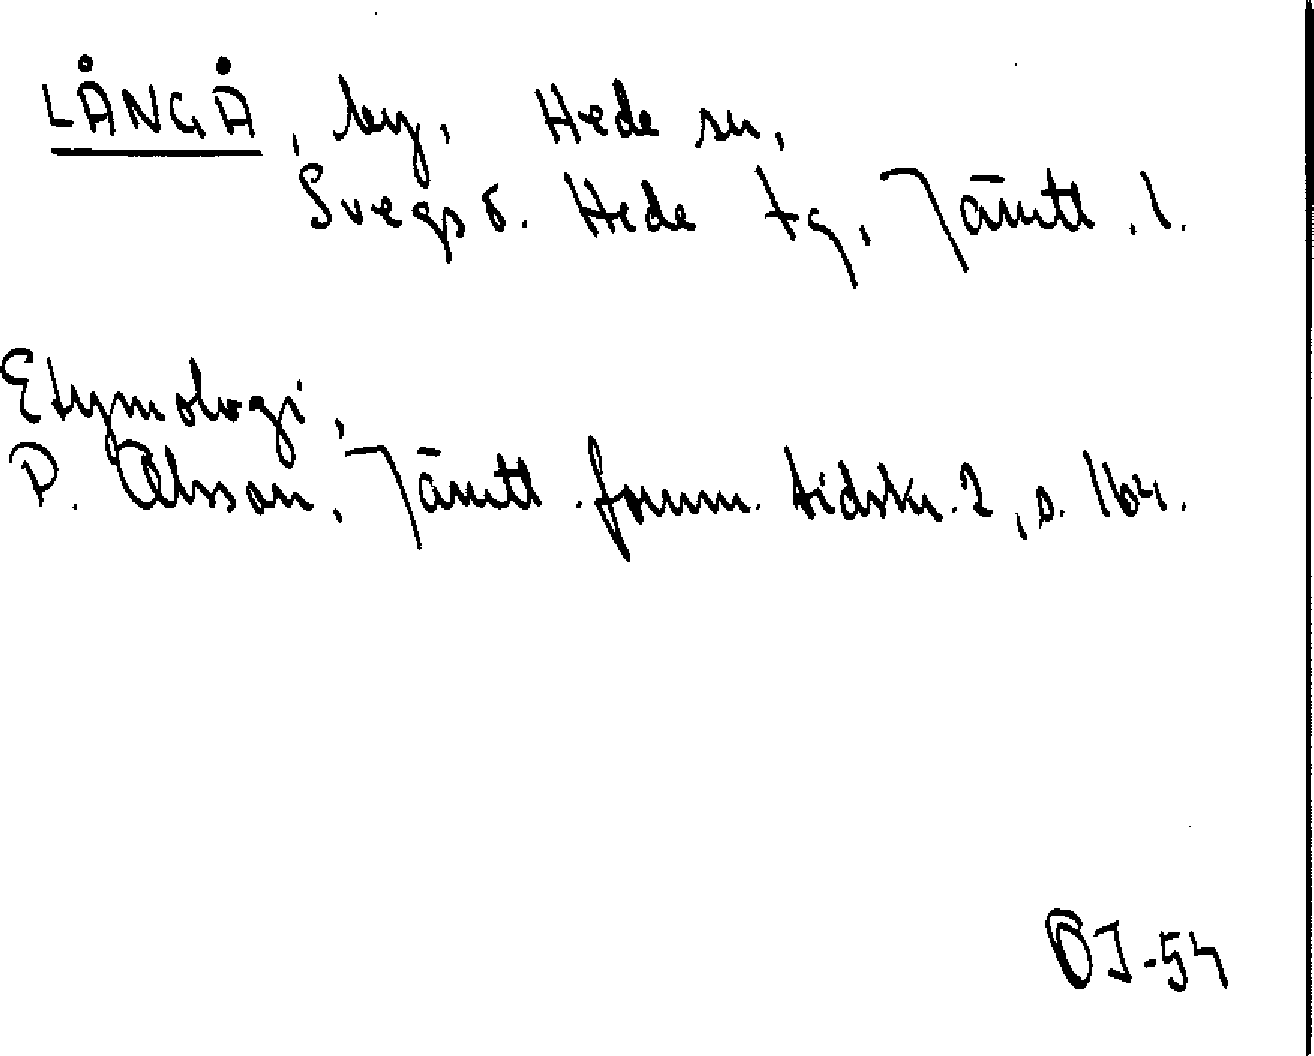 LÅNGÅ, by, Hede sn,
Svegs o. Hede tg, Jämtl. l.
Etymologi,
P. Olsson, Jämtl. fornm. tidskr. 2, s. 164.
ÖJ-54